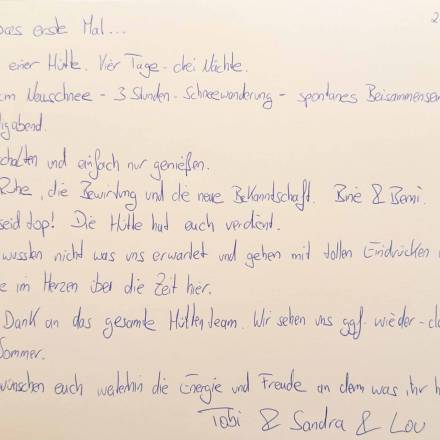 Das erste Mal... 2
einer Hütte. Vier Tage - drei Nächte.
cm Neuschnee - 3 Stunden - Schneewanderung - spontanes Beisammensein
ligabend.
schalten und einfach nur genießen.
Ruhe, die Bewirtung und die neue Bekanntschaft. Bine & Bemi.
seid top! Die Hütte hat euch verdient.
wussten nicht was uns erwartet und gehen mit tollen Eindrücken
e im Herzen über die Zeit hier.
Dank an das gesamte Hüttenteam. Wir sehen uns ggf. wieder - da
Sommer.
wünschen euch weiterhin die Energie und Freude an dem was ihr h
Tobi & Sandra & Lou